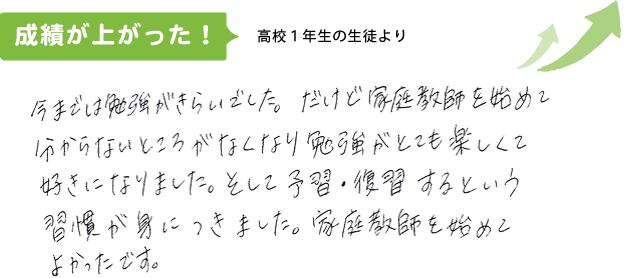 成績が上がった！
高校１年生の生徒より
今までは勉強がきらいでした。だけど家庭教師を始めて
分からないところがなくなり勉強がとても楽しくて
好きになりました。そして予習・復習するという
習慣が身につきました。家庭教師を始めて
よかったです。